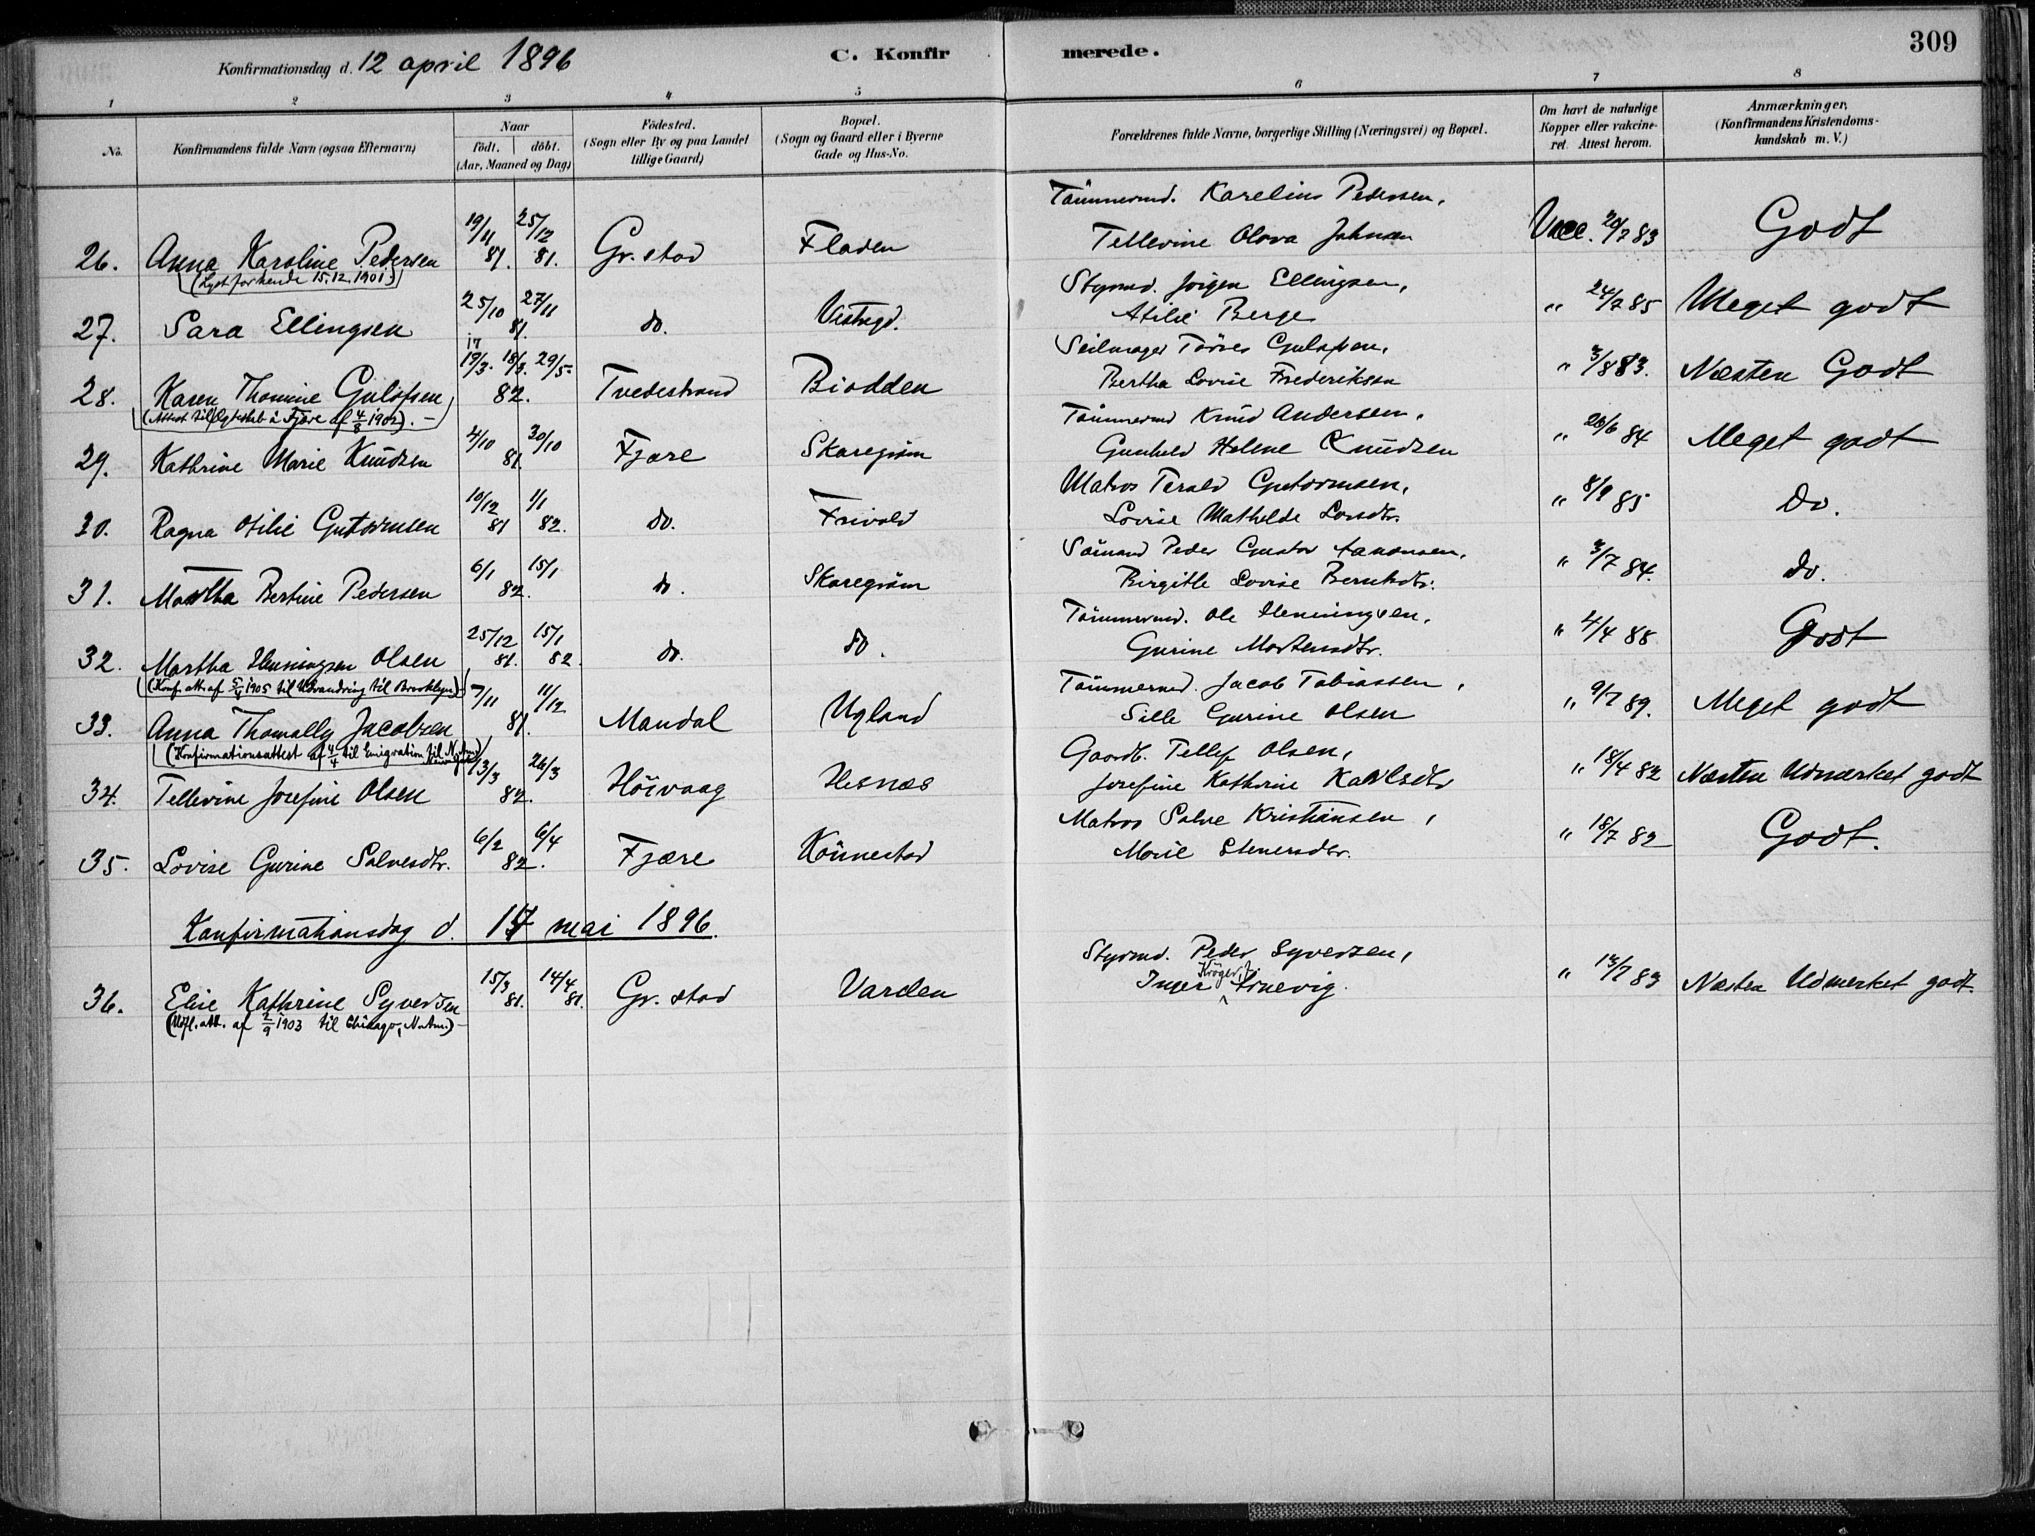 309
Konfirmationsdag d. 12 april 1896 C. Konfirmerede.
1 2 3 4 5 6 7 8
No. Konfirmandens fulde Navn (ogsaa Efternavn) Naar födt. döbt. (Aar, Maaned og Dag) Födested. (Sogn eller By og paa Landet tillige Gaard) Bopæl. (Sogn og Gaard eller i Byerne Gade og Hus-No. Forældrenes fulde Navne, borgerlige Stilling (Næringsvei) og Bopæl. Om havt de naturlige Kopper eller vakcineret. Attest herom. Anmærkninger. (Konfirmandens Kristendomskundskab m. V.)
Tömmermd. Karelius Pedersen,
26. Anna Karoline Pedersen 19/11 81. 25/12 81. Gr.stad Fladen Tellevine Olava Johnsen Vacc. 20/7 83 Godt
(Lyst for hende 15.12.1901.)
Styrmd. Jörgen Ellingsen,
27. Sara Ellingsen 25/10 27/11 81. do. Vestregd. Atilie Berge " 24/7 85 Meget godt
Seilmager Törres Gulofsen,
28. Karen Thomine Gulofsen 19/3. 29/5 82. Tvedestrand Biodden Bertha Lovise Frederiksen " 3/8 83. Næsten Godt
(Attest til Egteskab i Fjære af 4/8 1902). —
Tömmermd Knud Andersen,
29. Kathrine Marie Knudsen 4/10 30/10 81. Fjære Skaregröm Gunhild Helene Knudsen " 26/6 84 Meget godt
Matros Terald Guttormsen,
30. Ragna Otilie Guttormsen 10/12 81 1/1 82. do. Frivold Lovise Mathilde Larsdtr. " 8/9 85 Do.
Sömand Peder Gustav Aanonsen,
31. Martha Bertine Pedersen 6/1 15/1 82. do. Skaregröm Birgitte Lovise Berntsdtr. " 3/7 84. do.
Tömmermd. Ole Henningsen,
32. Martha Henningsen Olsen 25/12 81. 15/1 82. do. do. Gurine Mortensdtr. " 4/4 88 Godt
(Konf. att. af 5/4 1905 til Udvandring til Brooklyn)
Tömmermd. Jacob Tobiassen,
33. Anna Thomally Jacobsen 7/11 11/12 81. Mandal Ugland Sille Gurine Olsen " 9/7 89. Meget godt
(Konfirmationsattest af 4/4 til Emigration til
Gaardb. Tellef Olsen,
34. Tellevine Josefine Olsen 13/3 26/3 82. Höivaag Hesnæs Josefine Kathrine Karlsdtr " 18/4 82 Næsten Udmærket godt
Matros Salve Kristiansen,
35. Lovise Gurine Salvesdtr. 6/2 6/4 82. Fjære Könnestad Marie Stenersdtr. " 18/7 82 Godt.
Konfirmationsdag d. 17 mai 1896.
Styrmd. Peder Syversen,
36. Elise Kathrine Syversen 15/3 81. 14/4 81. Gr.stad Varden Inger Kröger Arnevig. " 13/7 83 Næsten Udmerket godt.
(Udfl. att. af 2/9 1903 til Chicago, N. Am.) —